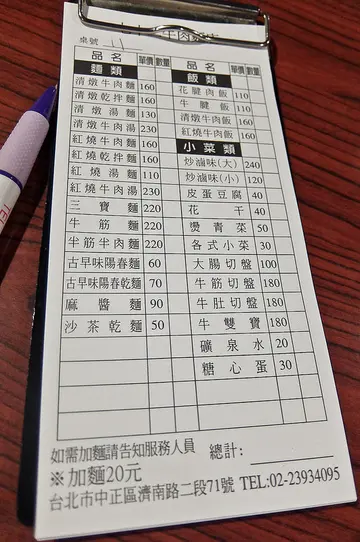 牛肉
桌號 11
品名 單價 數量
麵類
清燉牛肉麵 160
清燉乾拌麵 160
清燉湯麵 130
清燉牛肉湯 230
紅燒牛肉麵 160
紅燒乾拌麵 160
紅燒湯麵 110
紅燒牛肉湯 230
三寶麵 220
牛筋麵 220
半筋半肉麵 220
古早味陽春麵 60
古早味陽春麵 70
麻醬麵 90
沙茶乾麵 50
品名 單價 數量
飯類
花腱肉飯 110
牛腱飯 110
清燉牛肉飯 160
紅燒牛肉飯 160
小菜類
炒滷味(大) 240
炒滷味(小) 120
皮蛋豆腐 40
花干 40
燙青菜 50
各式小菜 30
大腸切盤 100
牛筋切盤 180
牛肚切盤 180
牛雙寶 180
礦泉水 20
糖心蛋 30
如需加麵請告知服務人員 總計:
※加麵20元
台北市中正區濟南路二段71號 TEL:02-23934095